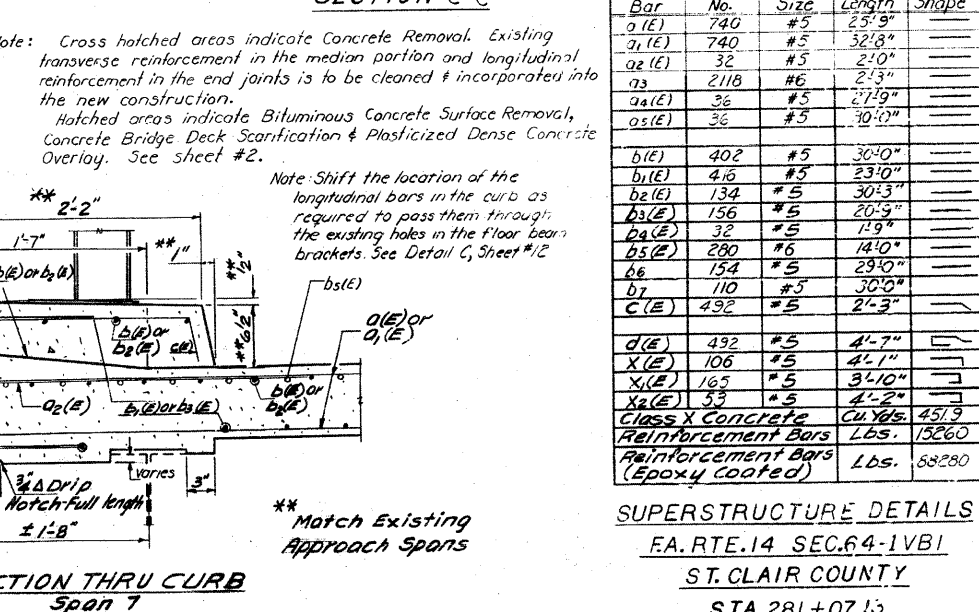 SECTION C-C
Note: Cross hatched areas indicate Concrete Removal. Existing
transverse reinforcement in the median portion and longitudinal
reinforcement in the end joints is to be cleaned & incorporated into
the new construction.
Hatched areas indicate Bituminous Concrete Surface Removal,
Concrete Bridge Deck Scarification & Plasticized Dense Concrete
Overlay. See sheet #2.
Note: Shift the location of the
longitudinal bars in the curb as
required to pass them through
the existing holes in the floor beam
brackets. See Detail C, Sheet #12
** 2'-2"
1'-7"
** 1"
** 1/2"
** 6 1/2"
b(E) or b2(E)
b5(E)
a(E) or
a1(E)
b(E) or
b2(E)
c(E)
a2(E)
b1(E) or b3(E)
b(E) or
b2(E)
3/4" Δ Drip
Notch-Full length
varies
3"
± 1'-8"
** Match Existing
Approach Spans
CTION THRU CURB
Span 7
Bar No. Size Length Shape
a(E) 740 #5 25'-9"
a1(E) 740 #5 32'-8"
a2(E) 32 #5 2'-0"
a3 2118 #6 2'-3"
a4(E) 36 #5 27'-9"
a5(E) 36 #5 30'-0"
b(E) 402 #5 30'-0"
b1(E) 416 #5 23'-0"
b2(E) 134 #5 30'-3"
b3(E) 156 #5 20'-9"
b4(E) 32 #5 1'-9"
b5(E) 280 #6 14'-0"
b6 154 #5 29'-0"
b7 110 #5 30'-0"
c(E) 492 #5 2'-3"
d(E) 492 #5 4'-7"
X(E) 106 #5 4'-1"
X1(E) 165 #5 3'-10"
X2(E) 53 #5 4'-2"
Class X Concrete Cu. Yds. 451.9
Reinforcement Bars Lbs. 15260
Reinforcement Bars
(Epoxy Coated) Lbs. 88280
SUPERSTRUCTURE DETAILS
F.A. RTE. 14 SEC. 64-1VB1
ST. CLAIR COUNTY
STA. 281+07.13